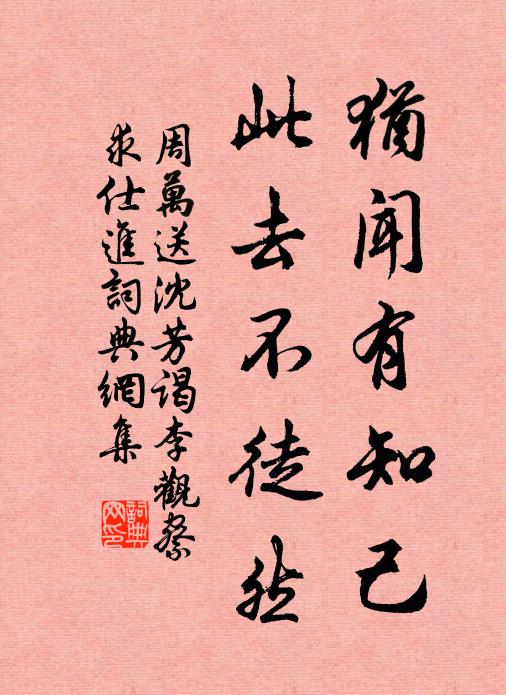 猶聞有知己
此去不徒然
周萬送沈芳謁李觀察
求仕進詞典網集
詞典
网印